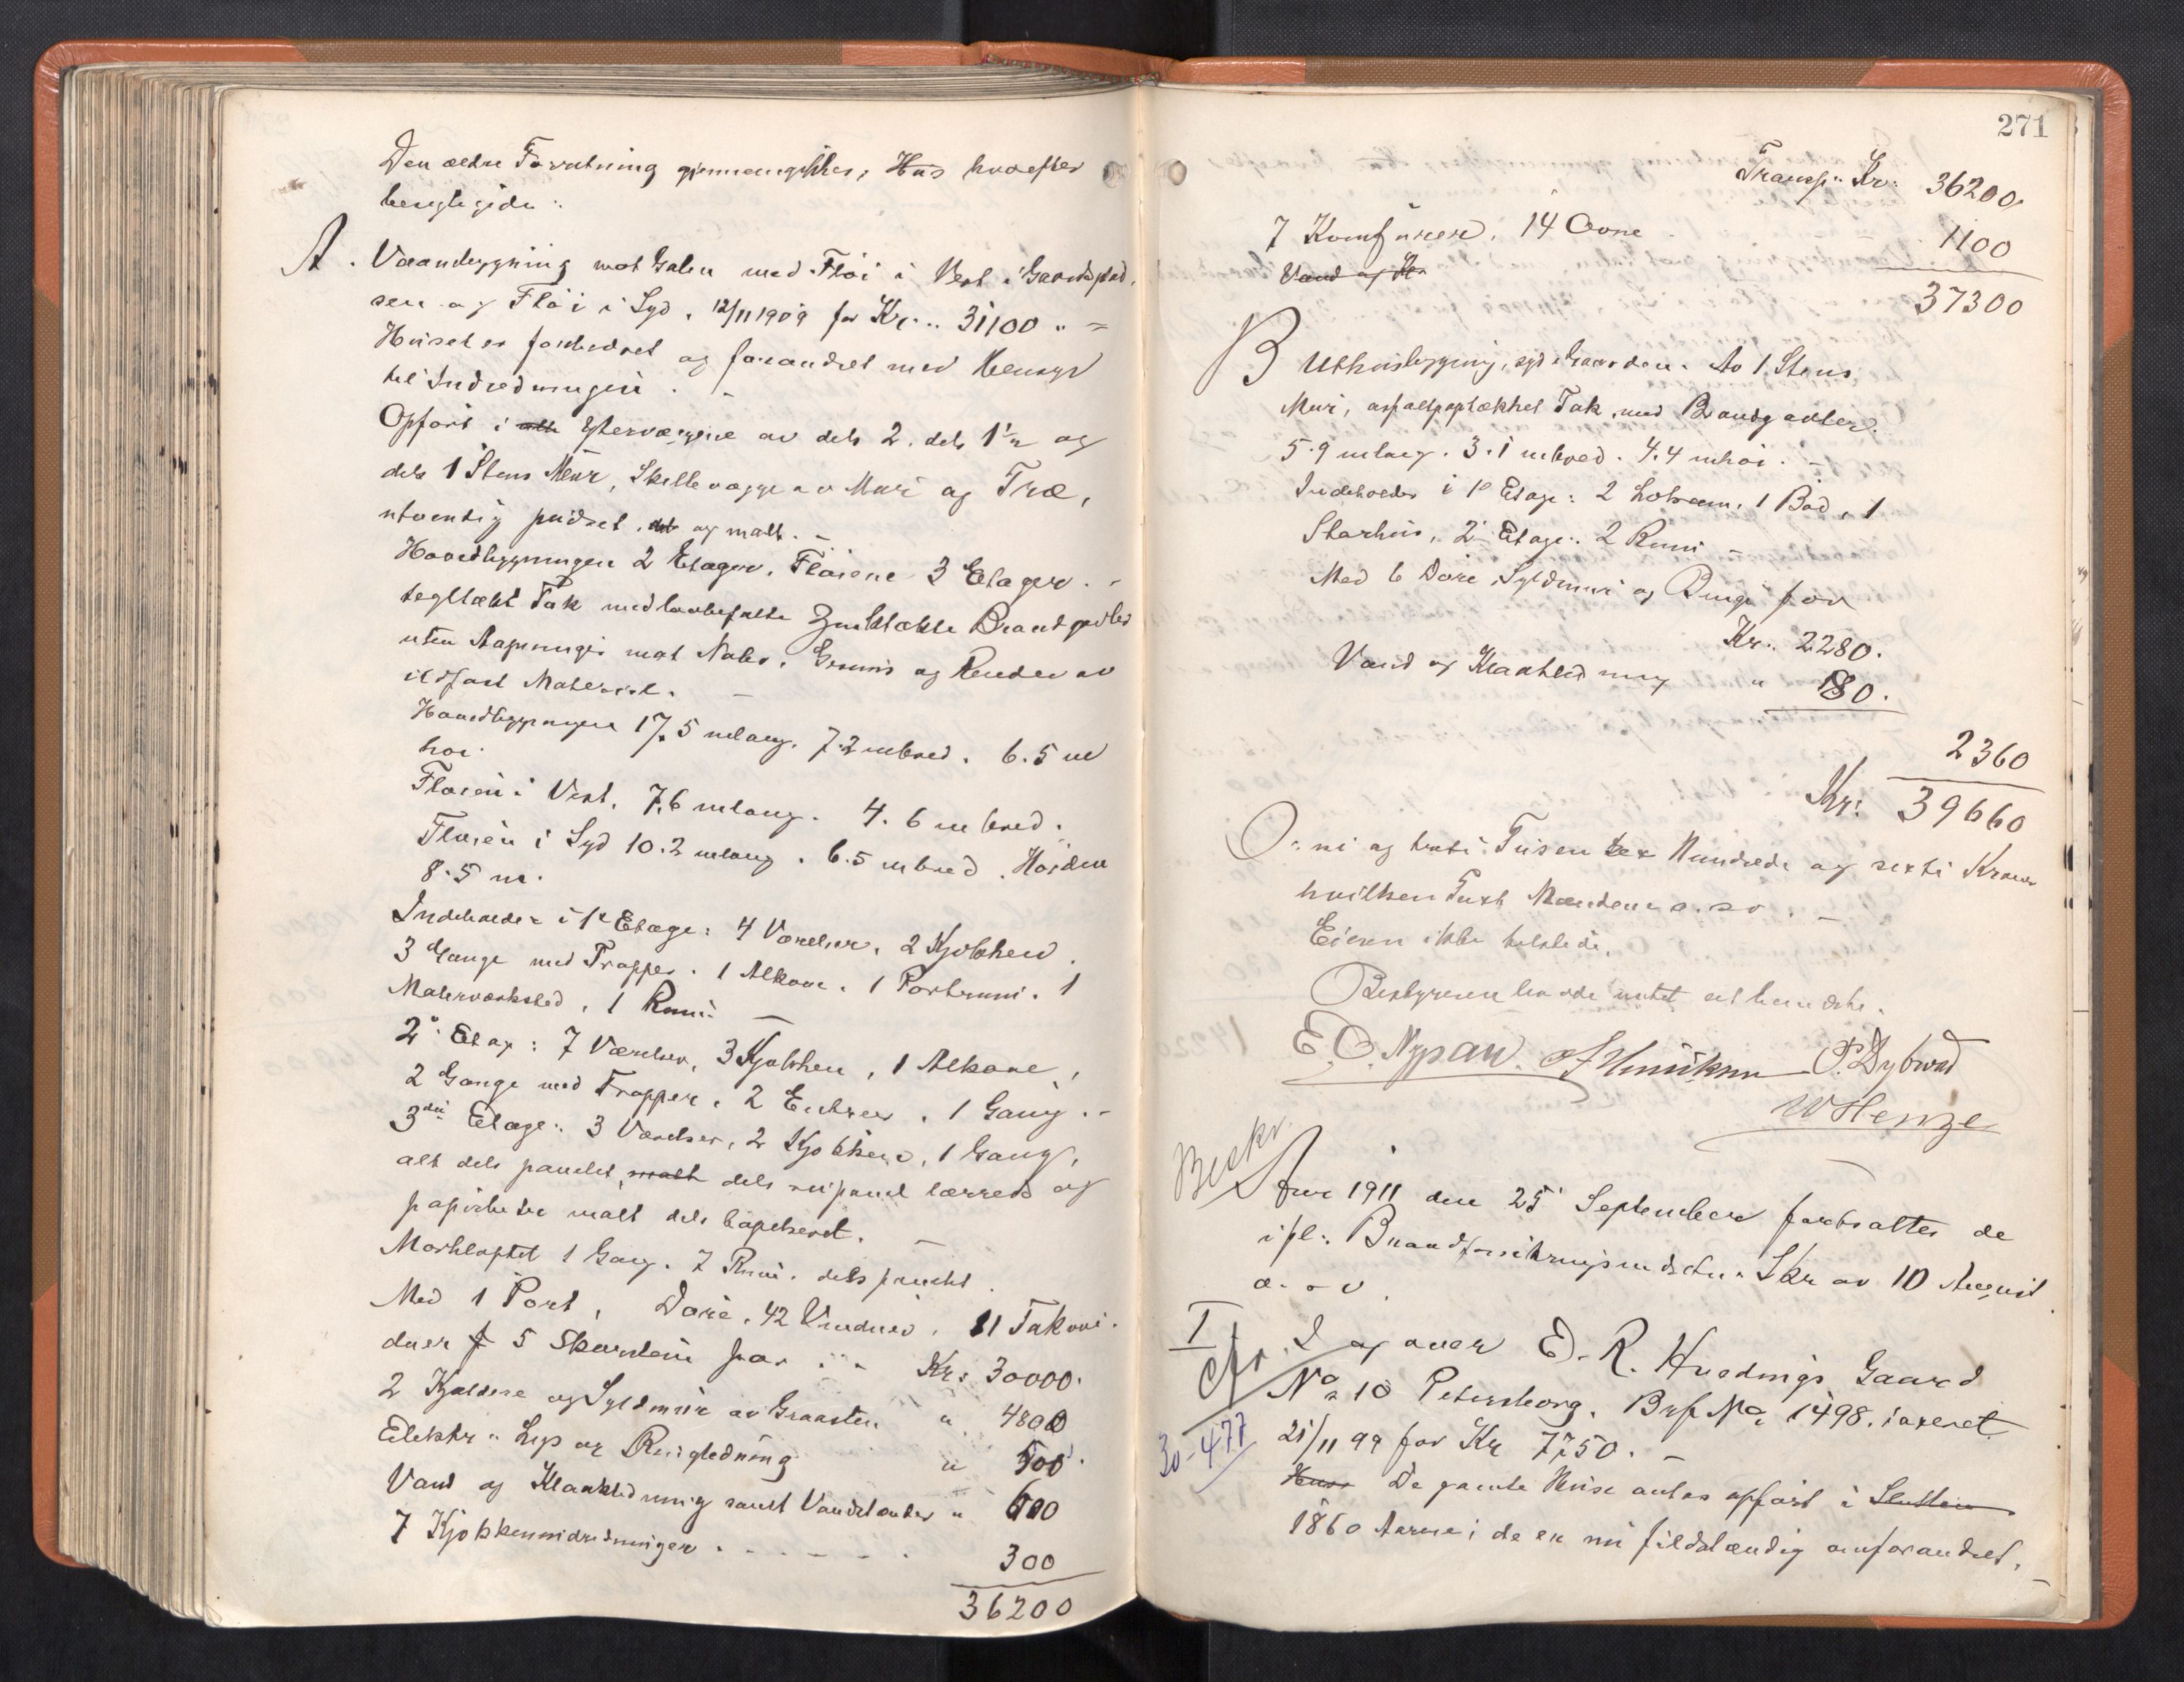 Den ældre Forretning gjennemgikkes, Hus hvorefter
besigtigede:
A. Vaaningbygning mot Gaten med Fløi i Vest i Gaardsplad-
sen og Fløi i Syd. 12/11 1909 for Kr. 31100.
Huset er forbedret og forandret med Hensyn
til Indredningen.
Opført i alle Ydervæggene av dels 2. dels 1½ og
dels 1 Stens Mur, Skillevægge av Mur og Træ,
utvendig pudset, og malt.
Hovedbygningen 2 Etager. Fløiene 3 Etager.
tegltækt Tak med lovbefalte Zinktækte Brandgavler
uten Aapninger mot Nabo. Gesims og Render av
ildfast Materiel.
Hovedbygningen 17.5 m lang. 7.2 m bred. 6.5 m
høi.
Fløien i Vest. 7.6 m lang. 4.6 m bred.
Fløien i Syd 10.2 m lang. 6.5 m bred. Høiden
8.5 m.
Indeholder i 1e Etage: 4 Værelser, 2 Kjøkken.
3 Gange med Trapper. 1 Alkove. 1 Portrum. 1
Malerværksted, 1 Rum.
2e Etage: 7 Værelser, 3 Kjøkken, 1 Alkove,
2 Gange med Trapper. 2 Entreer. 1 Gang.
3die Etage: 3 Værelser, 2 Kjøkken, 1 Gang,
alt dels panelet, malt dels rupanel lærreds og
papirbetr malt dels tapetseret.
Mørkloftet 1 Gang. 7 Rum. dels panelet.
Med 1 Port, Døre. 42 Vinduer. 11 Takvin-
duer f 5 Skorstene for Kr: 30000.
2 Kjældere og Syldmur av Graasten " 4800
Elektr. Lys og Ringledning " 500
Vand og Kloakledning samt Vandklosetter " 600
7 Kjøkkenindredninger 300
36200
271
Transp. Kr. 36200
7 Komfurer, 14 Ovne 1100
Vand og Kl
37300
B Uthusbygning, syd i Gaarden. Av 1 Stens
Mur, asfaltpaptækket Tak, med Brandgavler.
5.9 m lang. 3.1 m bred. 4.4 m høi.
Indeholder i 1e Etage: 2 Lokrum, 1 Bod, 1
2 Etage: 2 Rum
Med 6 Døre, Syldmur og for
Kr. 2280.
Vand og Kloakledning " 80.
2360
Kr: 39660
O: ni og treti Tusen sex Hundrede og sexti Kroner
hvilken Taxt Mændene o.s.v.
Eieren ikke tilstede.
Bestyreren havde intet at bemærke.
E. O. Nypan. Henriksen P. Dybvad
W Henze
Beskr.
Aar 1911 den 25 September fortsattes de
ifl: Brandforsikringsindretn. Skr av 10 August
o.s.v.
I
Cfr. I og over E. R. Hvedings Gaard
No 10 Petersborg. Brf No 1498. taxeret
30-477 21/11 99 for Kr 7750.
Huse De gamle Huse antas opført i Slutten
1860 Aarene; de er nu fuldstændig omforandret,